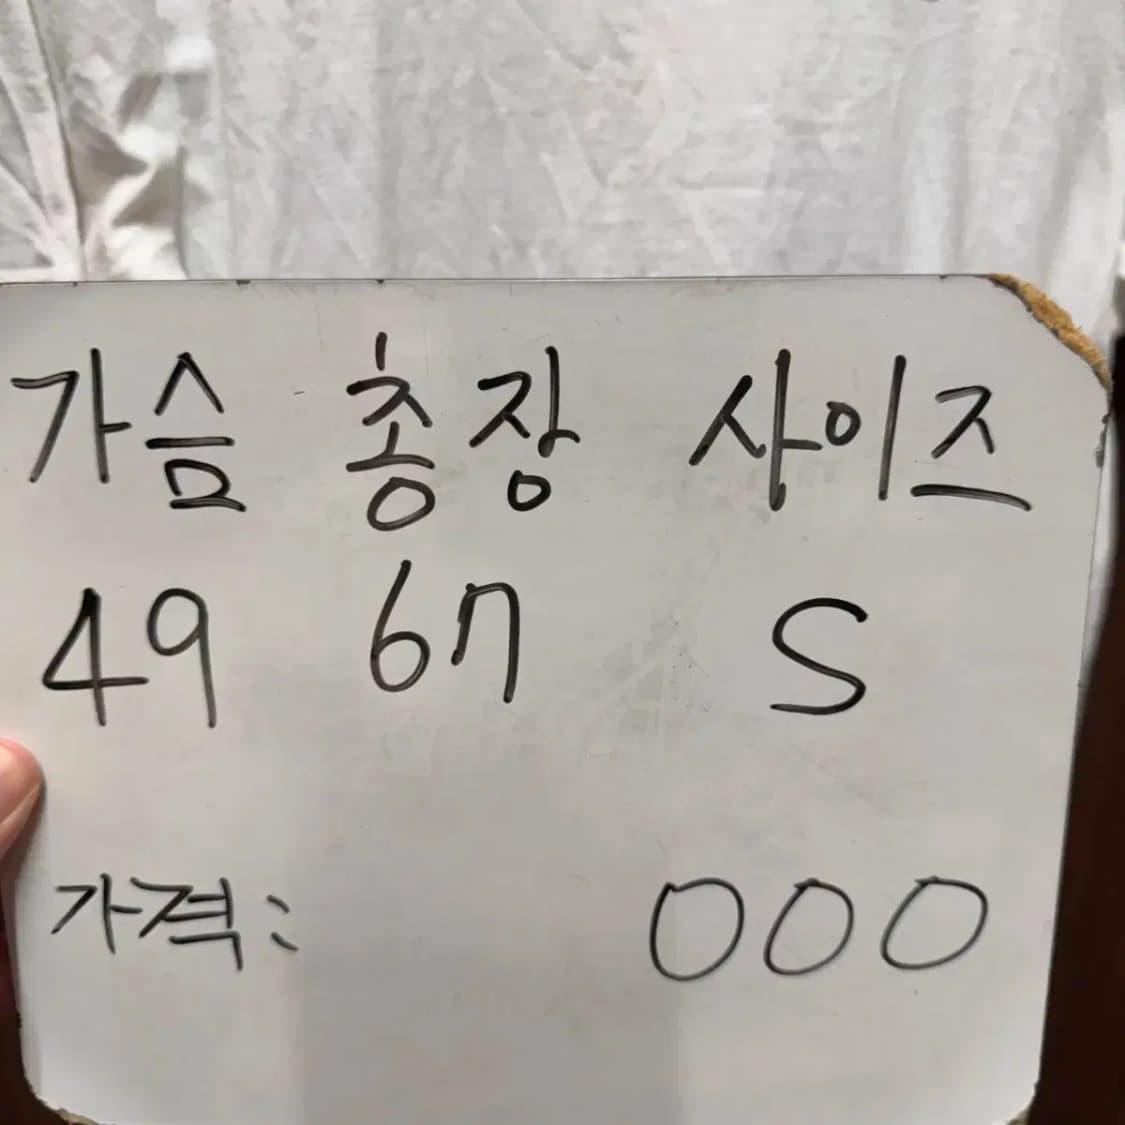 가슴 총장 사이즈
49 67 S
가격: 000